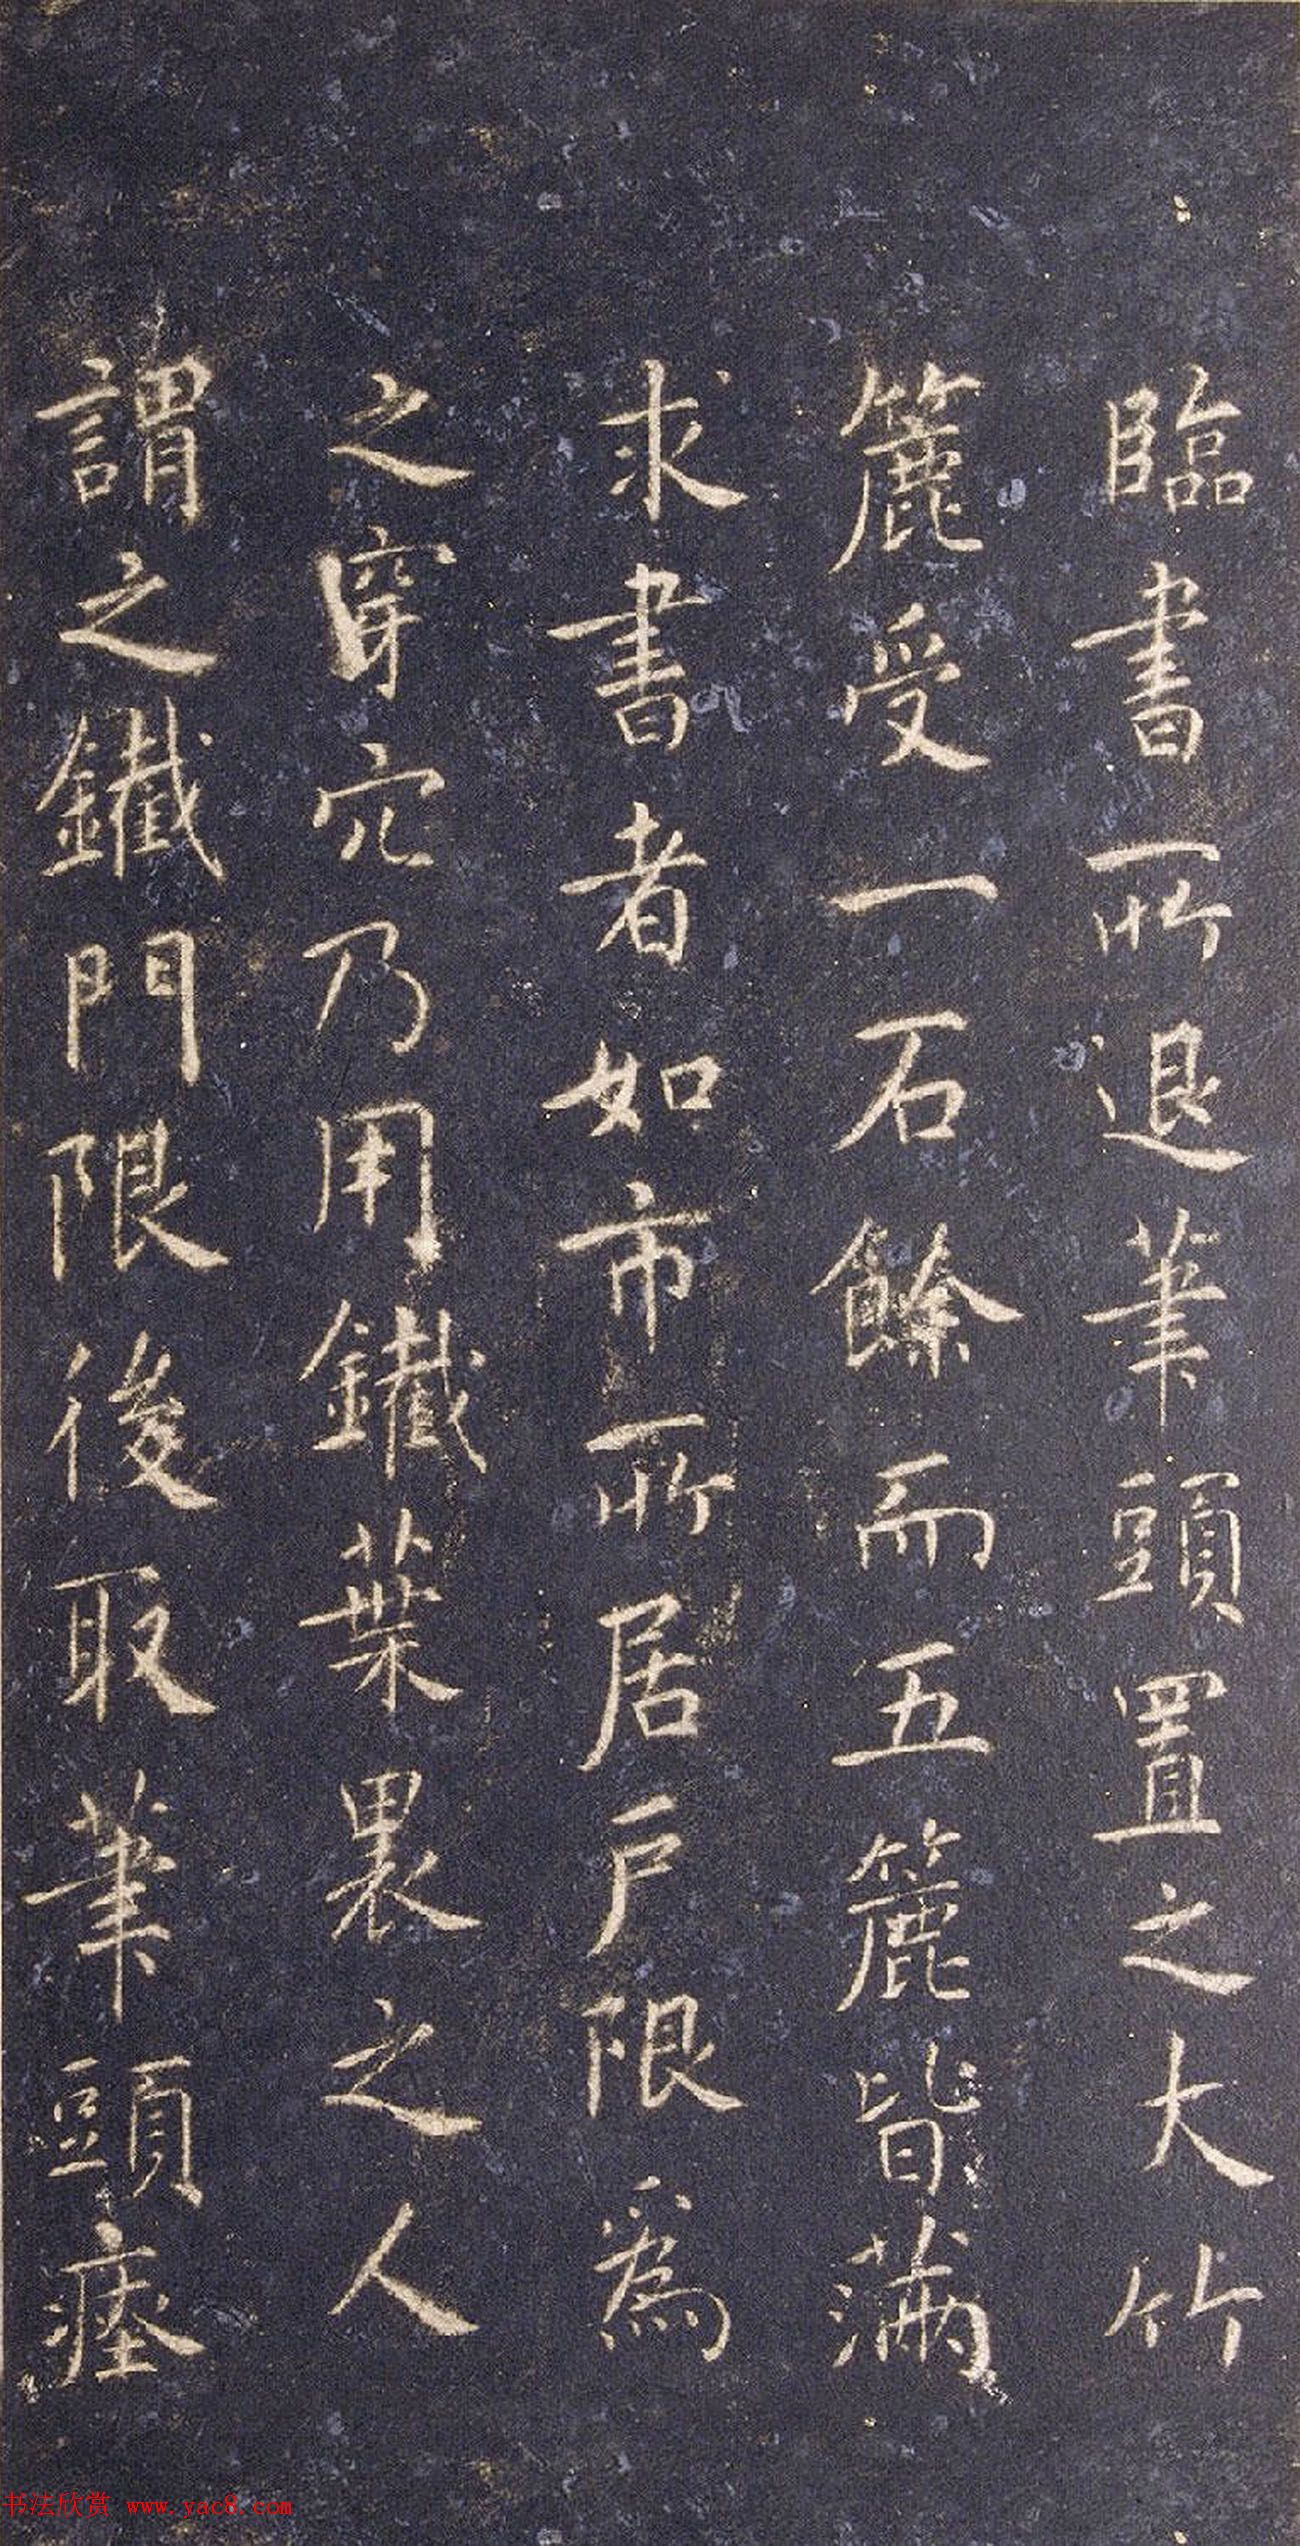 臨書所退筆頭置之大竹
簏受一石餘而五簏皆滿
求書者如市所居戶限為
之穿穴乃用鐵葉裹之人
謂之鐵門限後取筆頭瘞
书法欣赏 www.yac8.com